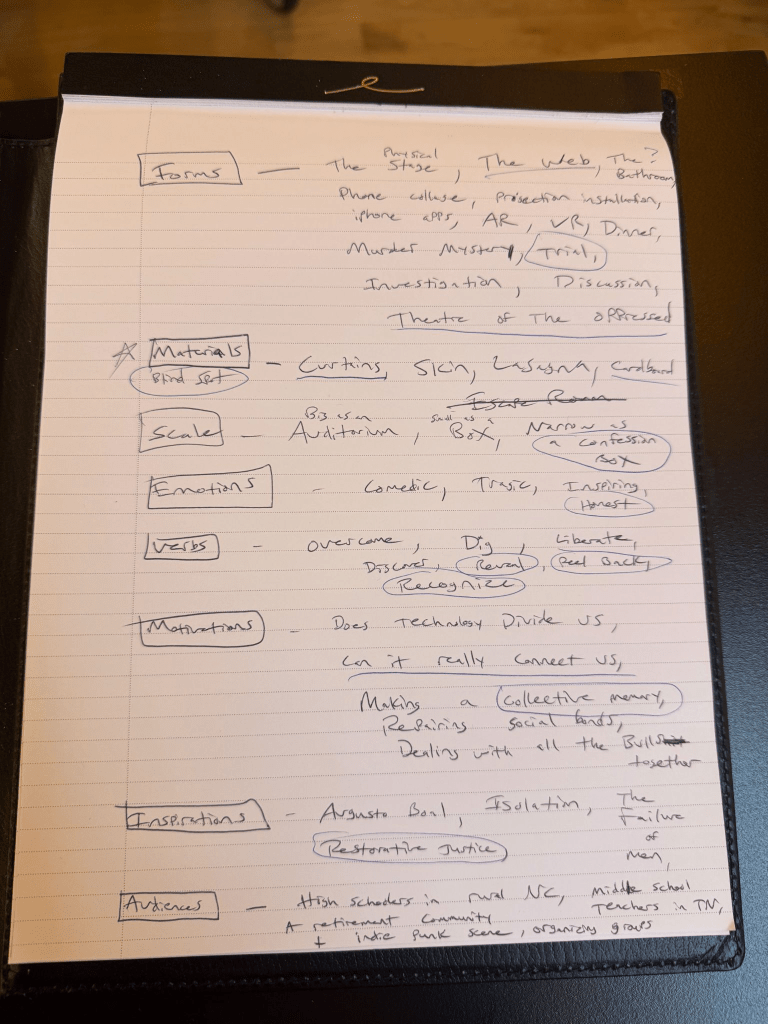 Forms — The Physical Stage, The Web, The? Bathroom,
Phone collage, Projection installation,
iphone apps, AR, VR, Dinner,
Murder Mystery, Trial,
Investigation, Discussion,
Theatre of The Oppressed
Materials - Curtains, Skin, Lasagna, Cardboard
Blind Spot
Escape Room
Scale - Big as an Auditorium, Small as a Box, Narrow as
a confession
Box
Emotions - Comedic, Tragic, Inspiring,
Honest
Verbs - overcome, Dig, Liberate,
Discover, Reveal, Peel Back,
Recognize
Motivations - Does Technology Divide us,
Can it really connect us,
Making a collective memory,
Repairing social bonds,
Dealing with all the Bullshit
together
Inspirations - Augusto Boal, Isolation, The
Failure
of
Men,
Restorative Justice,
Audiences — High schoolers in rural NC, Middle school
Teachers in TN,
A retirement community
+ indie punk scene, organizing groups